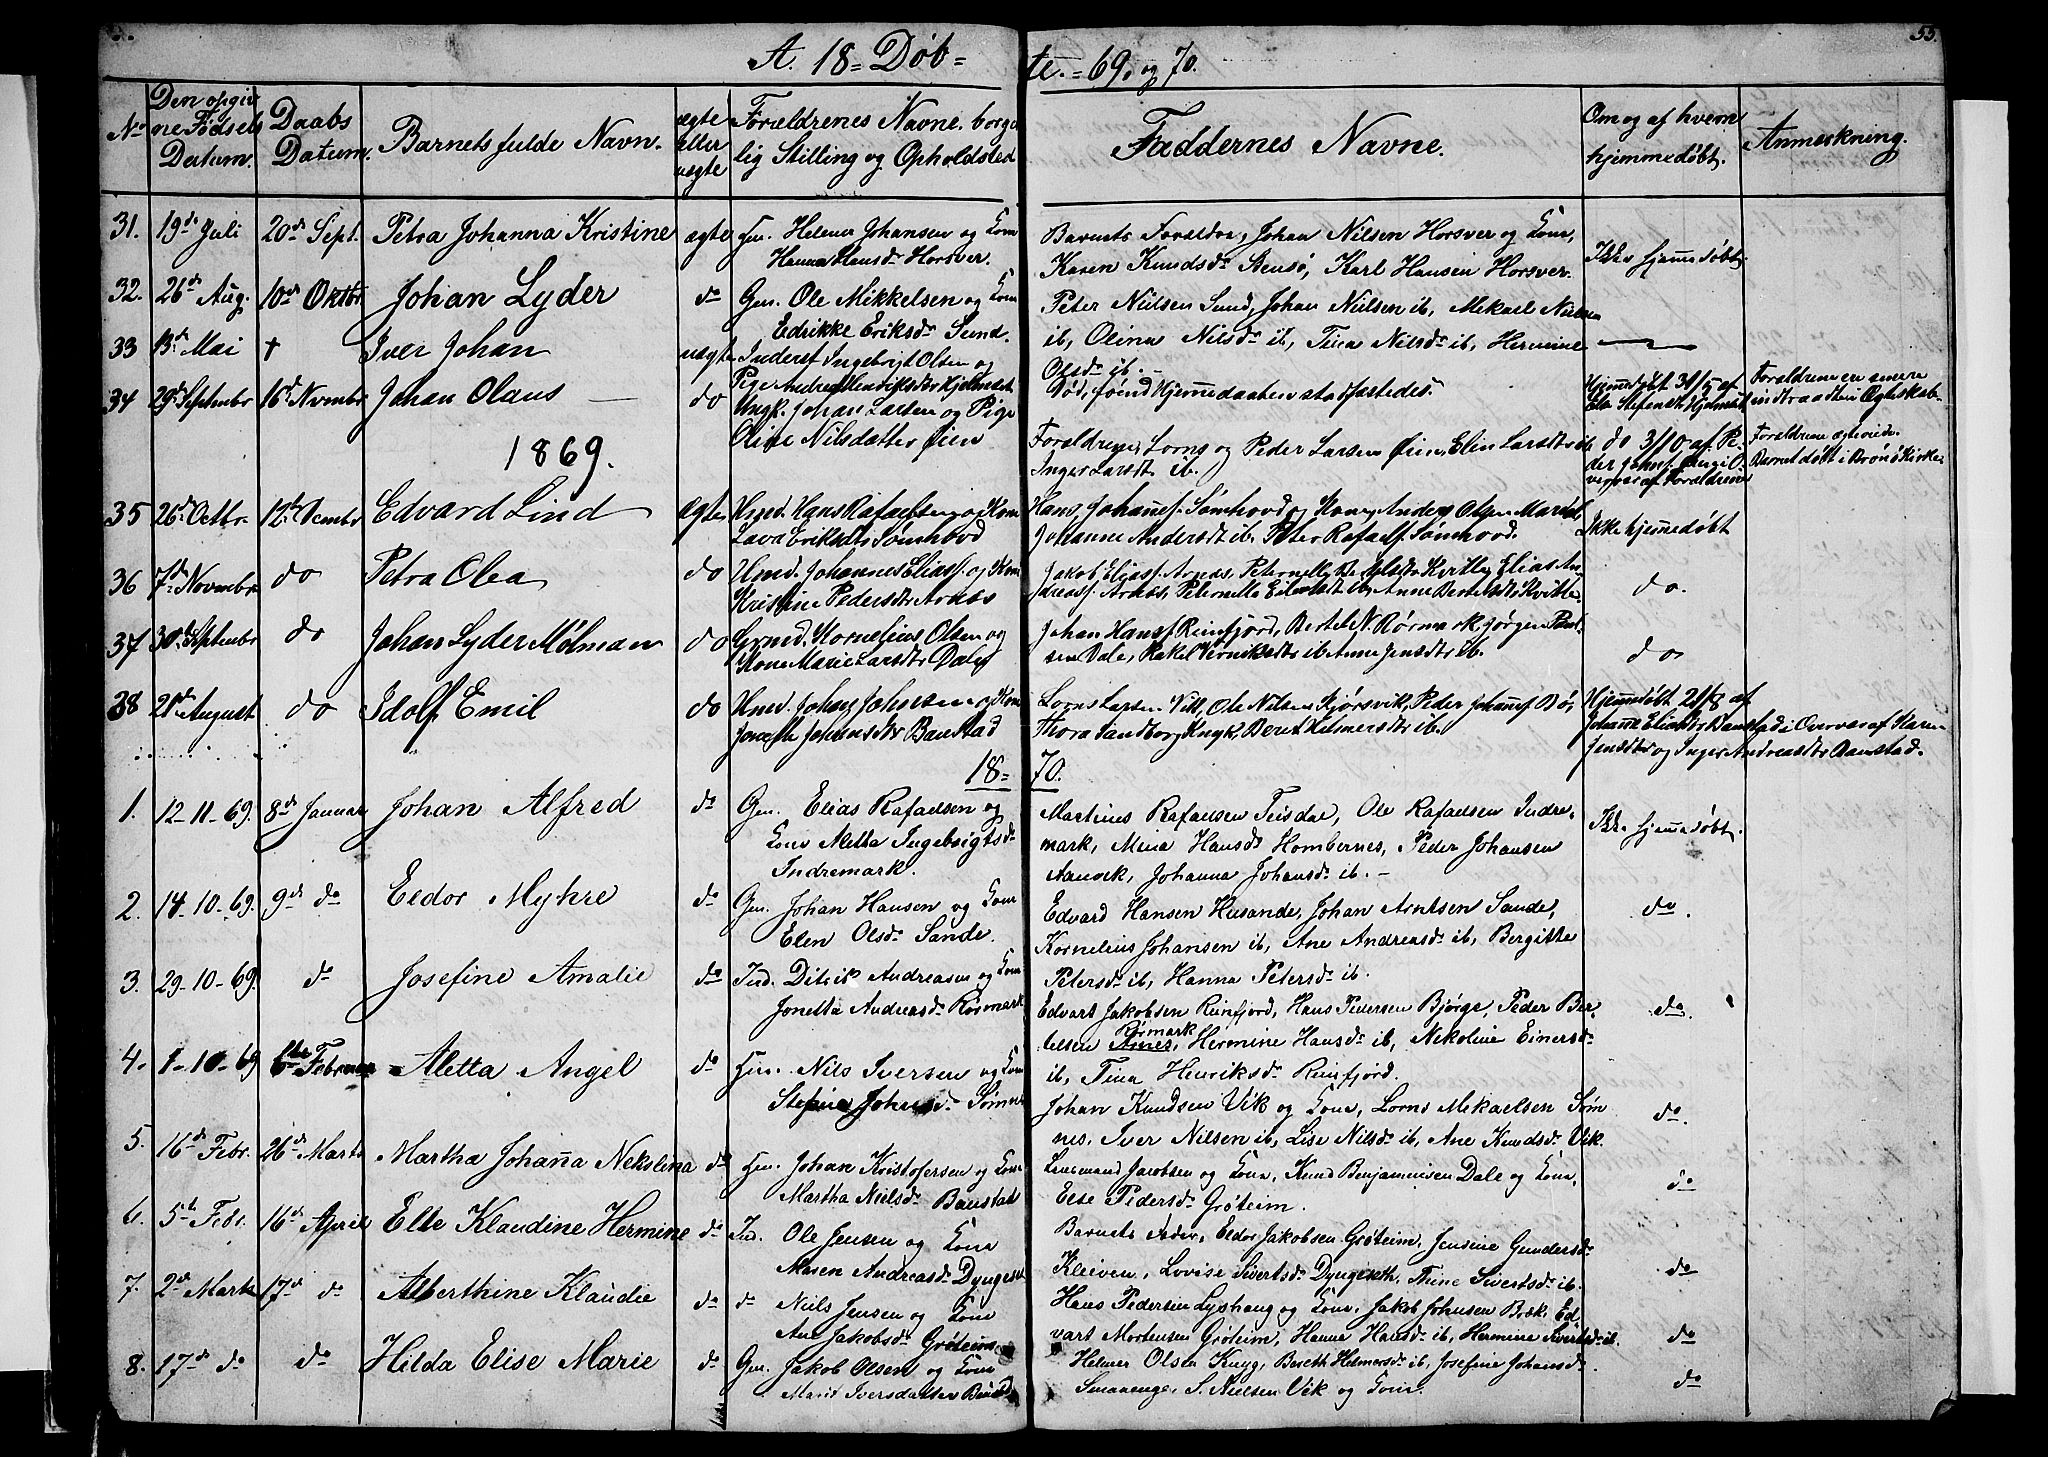 55.
A. 18= Døb= te.=69. og 70.
No
Den opgiv
ne Fødsels
Datum.
Daabs
Datum.
Barnets fulde Navn.
ægte
eller
uægte
Forældrenes Navne, borger
lig Stilling og Opholdsted
Faddernes Navne.
Om og af hvem
hjemmedøbt.
Anmerkning.
31. 19de Juli 20de Sept. Petra Johanna Kristine ægte Helmer Johansen og Kone
Hanna Hansdr Horsver.
Barnets Forældre, Johan Nilsen Horsver og Kone,
Karen Knudsdr Stensø, Karl Hansen Horsver.
Ikke hjemmedøbt
32. 26de Aug. 10de Oktbr Johan Lyder do Gm. Ole Mikkelsen og Kone
Edrikke Eriksdr Sund.
Peter Nielsen Sund, Johan Nielsen ib, Mekael Nielsen
ib, Olina Nilsdr ib, Tina Nilsdr ib, Hermine
Olsdr ib.
33 13de Mai † Iver Johan uægte Inderst Ingebrigt Olsen og
Pige Andrea Henriksdtr Hjelmset
Død, førend Hjemmedaaben stadfæstedes.
Hjemmedøbt 31/5 af
Else Stefensdtr Hjelmset
Forældrene ere senere
indtraadte i Ægteskab.
34 29de Septembr 16de Novmbr Johan Olaus do Ungk. Johan Larsen og Pige
Oline Nilsdatter Øien
Forældrene, Lorns og Peder Larsen Øien, Elen Larsdtr ib
Inger Larsdt ib.
do 3/10 af Pe-
der Johns. Øng i O-
vervær af Forældrene
Forældrene ægteviede.
Barnet døbt i Brønø Kirke.
1869.
35 26de Octbr. 12te Decmbr Edvard Lind ægte Hmd. Hans Rafaelsen og Kone
Lava Eriksdtr Sømhovd
Hans Johans. Sømhovd og Kone, Anders Olsen Mardal,
Johanne Andersdt ib. Peter Rafaels. Sømhovd.
Ikke hjemmedøbt
36 7de Novembr do Petra Olea do Hmd. Johannes Elias. og Kone
Kristine Pedersdtr Arnæs
Jakob Elias. Arnæs, Peternelle Bertelsdtr Kvitle, Elias An-
dreas. Arnæs, Peternelle Eilertsdt ib, Anne Bertelsdtr Kvitle.
do.
37 30te Septembr do Johan Lyder Mølman do Grnd. Kornelius Olsen og
Kone Marie Larsdtr Dale
Johan Hans. Reinfjord, Bertel N. Rørmark, Jørgen Paul-
sen Dale, Rakel Henriksdtr ib, Anne Jensdtr ib.
do
38 21de August do Idolf Emil do Hmd. Johan Johnsen og Kone
Joneth Johansdtr Baustad
Lorns Larsen Vik, Ole Nilsen Kjørsvik, Peder Johans. Bø,
Thora Sandborg Knyk, Beret Helmersdtr ib.
Hjemmedøbt 21/8 af
Johanna Eliasdtr Baustad i Overvær af Karen
Jensdtr og Inger Andreasdtr Baustad.
18= 70.
1. 12-11-69. 8de Januar Johan Alfred do Gm. Elias Rafaelsen og
Kone Metta Ingebrigtsdr
Indremark.
Martines Rafaelsen Teisdal, Ole Rafaelsen Indre-
mark, Mina Hansdr Hombernes, Peder Johansen
Aanvik, Johanna Johansdr ib. -
Ikke hjemmedøbt.
2. 14-10-69. 9de do Eldor Myhre do Gm. Johan Hansen og Kone
Elen Olsdr Sande.
Edvard Hansen Husande, Johan Arntsen Sande,
Kornelius Johansen ib, Ane Andreasdr ib, Bergitte
Petersdr ib, Hanna Petersdr ib.
do.
3. 29-10-69. do Josefine Amalie do Ind. Ditlef Andreasen og Kone
Jonetta Andreasdr Rørmark
Edvart Jakobsen Reinfjord, Hans Pedersen Bjørge, Peder Ber-
Rørmark
telsen Arnes, Hermine Hansdr ib, Nekoline Einersdr
ib, Tina Henriksdr Reinfjord.
do.
4. 1-10-69 6te Februar Aletta Angel do Nils Iversen og Kone
Stefina Johnsdr Sømnes
Johan Knudsen Vik og Kone, Lorns Mekaelsen Søm-
nes, Iver Nilsen ib, Lise Nilsdr ib, Ane Knudsdr Vik.
do.
5. 16de Febr. 26de Marts Martha Johanna Nekolina do Johan Kristofersen og Kone
Martha Nielsdr Baustad
Lensmand Jacobsen og Kone, Knud Benjaminsen Dale og Kone,
Else Pedersdr Grøteim.
do
6. 5te Febr. 16de April Else Klaudine Hermine do Ind. Ole Jensen og Kone
Maren Andreasdr Dyngeset
Barnets Fader, Eldor Jakobsen Grøteim, Jensine Gundersdr
Kleiven, Lovise Sivertsdr Dyngeseth, Trine Sivertsdr ib.
do
7. 2de Marts 17de do Alberthine Klaudie do do Niels Jensen og Kone
Ane Jakobsdr Grøteim
Hans Pedersen Lyshaug og Kone, Jakob Johnsen Bæk, Ed-
vart Mortensen Grøteim, Hanna Hansdr ib, Hermine Sivertsdr ib.
do
8. 17de do do Hilda Elise Marie do Gm. Jakob Olsen og Kone
Marit Iversdatter
Helmer Olsen Knyg, Bereth Helmersdr ib, Josefine Johansdr
Smavenge, S. Nielsen Vik og Kone.
do